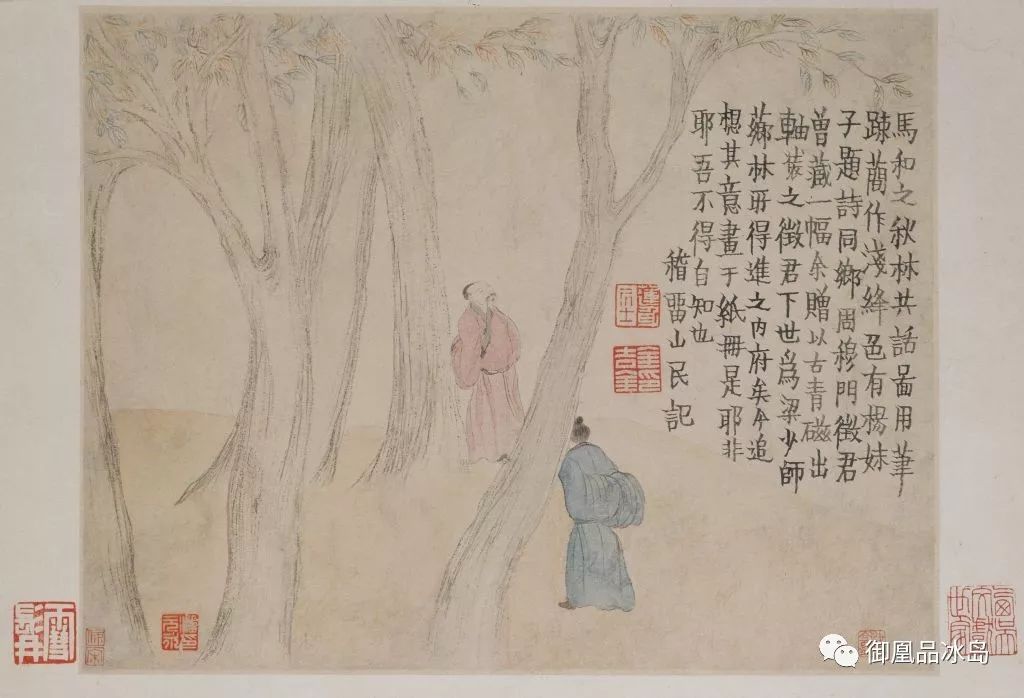 馬和之秋林共話啚用筆
踈蕳作淺絳色有楊妹
子題詩同鄉周穆門徵君
曽藏一幅余贈以古青磁出
軸裝之徵君下世爲梁少師
薌林所得進之内府矣今追
想其意畫于紙冊是耶非
耶吾不得自知也
稽畱山民記
金印吉金
御凰品冰岛